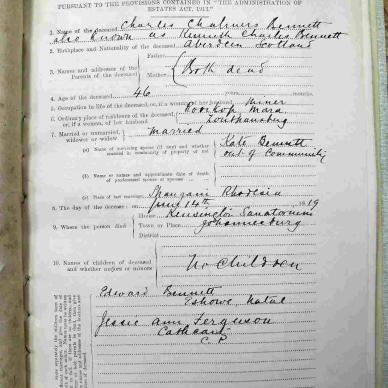 PURSUANT TO THE PROVISIONS CONTAINED IN "THE ADMINISTRATION
ESTATES ACT, 1913."
1. Name of the deceased Charles Chalmers Bennett
also known as Kenneth Charles Bennett
2. Birthplace and Nationality of the deceased Aberdeen Scotland
3. Names and addresses of the Parents of the deceased
Father
Mother
Both dead
4. Age of the deceased 46 years months
5. Occupation in life of the deceased, or, if a woman, of her husband Miner
6. Ordinary place of residence of the deceased,
or, if a woman, of her husband
Mara
Zoutpansberg
7. Married or unmarried,
widower or widow
Married
(a) Name of surviving spouse (if any) and whether
married in community of property or not
Kate Bennett
out of Community
(b) Name and approximate date of death
of predeceased spouse or spouses
(c) Place of last marriage Rhodesia
8. The day of the decease: on June 14th 1919
9. Where the person died
House Kensington Sanatorium
Town or Place Johannesburg
District
10. Names of children of deceased
and whether majors or minors
No Children
Edward Bennett
Eshowe, Natal
Jessie Ann Ferguson
Cathcart
C.P.